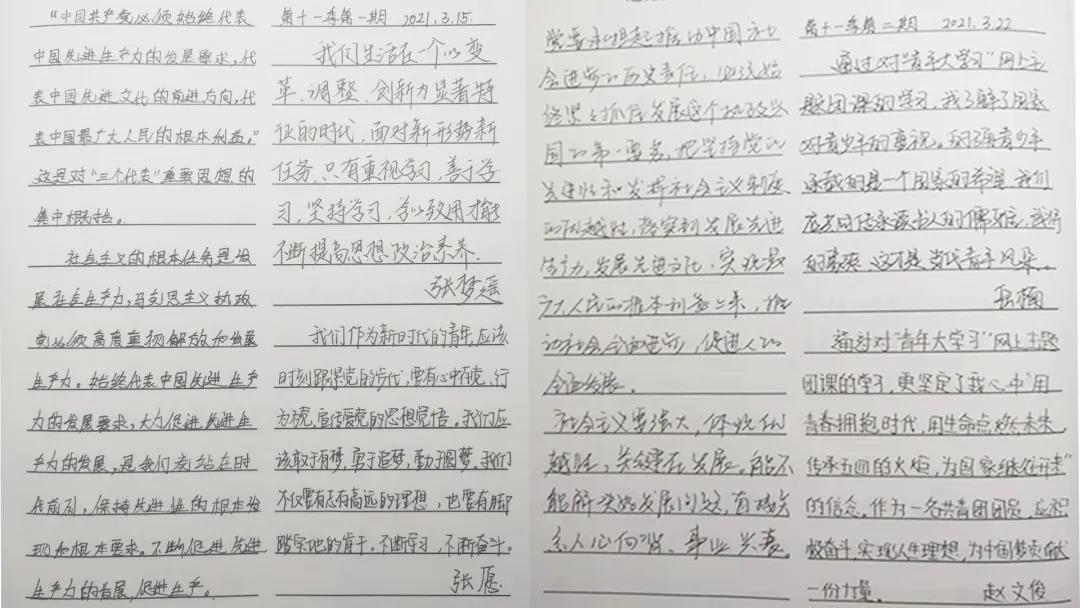 “中国共产党必须始终代表
中国先进生产力的发展要求,代
表中国先进文化的前进方向,代
表中国最广大人民的根本利益。”
这是对“三个代表”重要思想的
集中概括。
社会主义的根本任务是发
展社会生产力,马克思主义执政
党必须高度重视解放和发展
生产力。始终代表中国先进生产
力的发展要求,大力促进先进生
产力的发展,是我们党站在时
代前列,保持先进性的根本体
现和根本要求。不断促进先进
生产力的发展,促进生产。
第十一季第一期 2021.3.15.
我们生活在一个以变
革、调整、创新为显著特
征的时代,面对新形势新
任务,只有重视学习,善于学
习,坚持学习,学以致用才能
不断提高思想政治素养.
张梦遥
我们作为新时代的青年,应该
时刻跟紧党的步伐,要有心中有党,行
为为党,宣传爱党的思想觉悟。我们应
该敢于有梦,勇于追梦,勤于圆梦。我们
不仅要有志有高远的理想,也要有脚
踏实地的肯干。不断学习,不断奋斗。
张愿
党要承担起推动中国社
会进步的历史责任,必须始
终紧紧抓住发展这个执政兴
国的第一要务,把坚持党的
先进性和发挥社会主义制度
的优越性,落实到发展先进
生产力,发展先进文化,实现最
广大人民的根本利益上来,推
动社会全面进步,促进人的
全面发展.
社会主义要强大,体现优
越性,关键在发展。能不
能解决好发展问题,直接关
系人心向背、事业兴衰.
第十一季第二期 2021.3.22
通过对“青年大学习”网上主
题团课的学习,我了解了国家
对青少年的重视。青少年
承载的是一个国家的希望,我们
的豪爽,这才是当代青年风采。
通过对“青年大学习”网上主题
团课的学习,更坚定了我心中“用
青春拥抱时代,用生命点燃未来,
传承五四的火炬,为国家继往开来”
的信念。作为一名共青团团员,应积
极奋斗,实现人生理想,为中国梦贡献
一份力量。 赵文俊